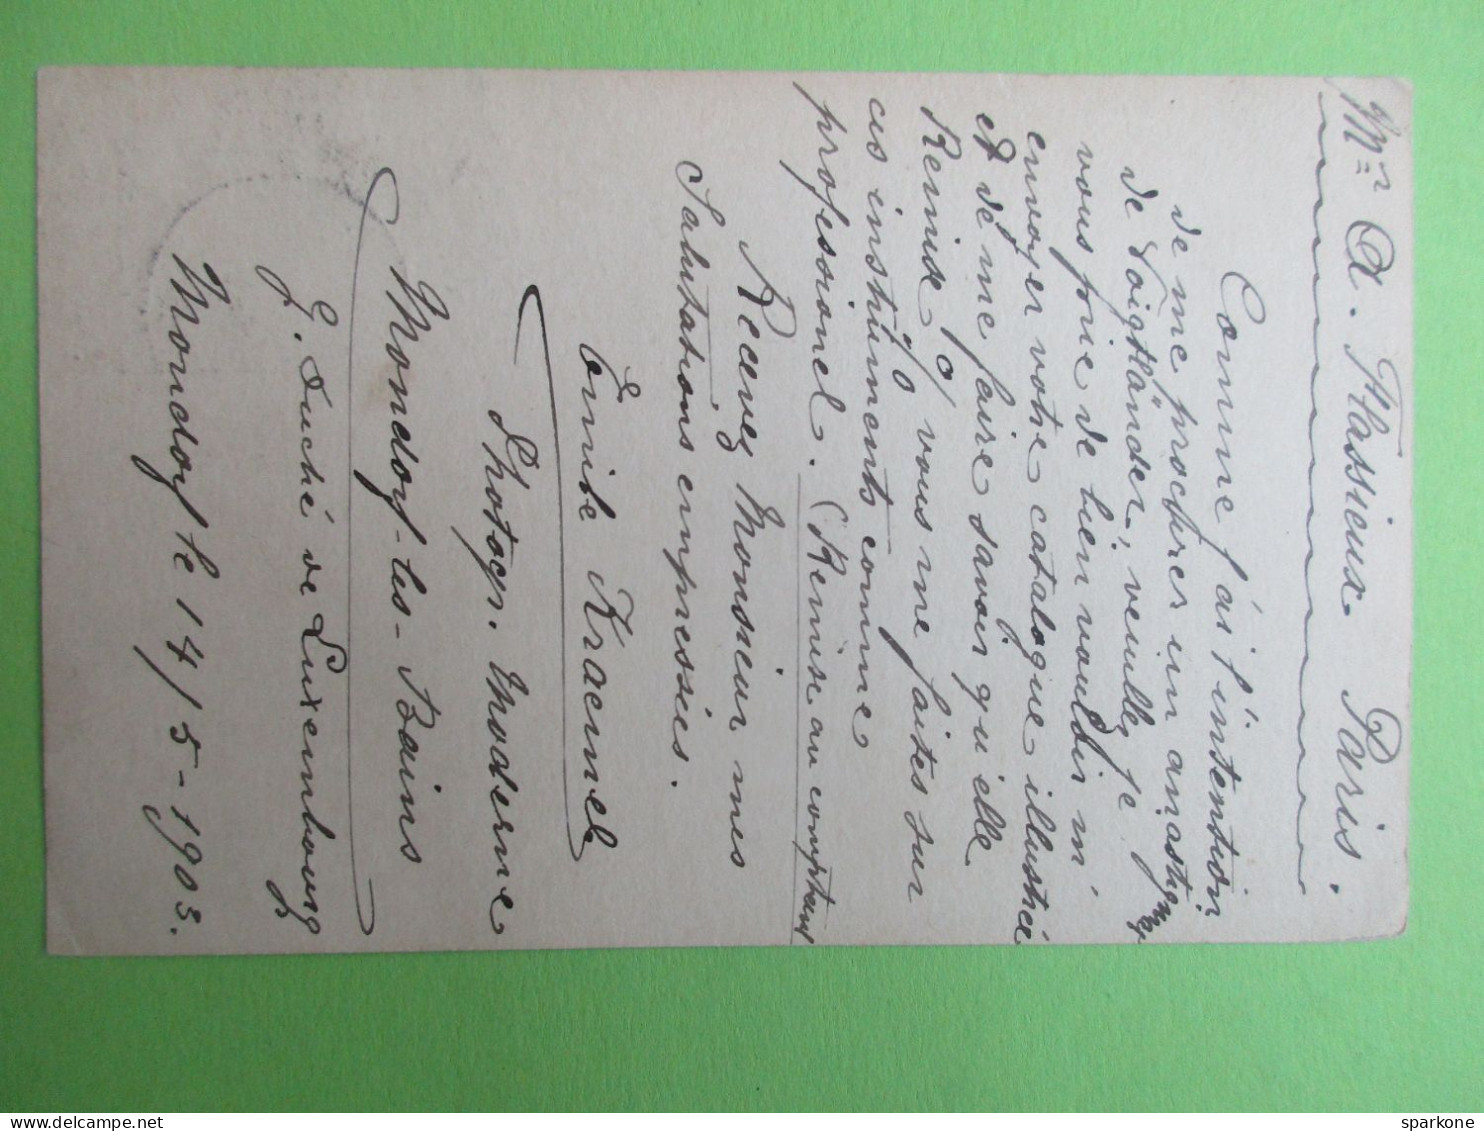 Mr A. Flassieux. Paris.
Comme j'ai l'intention
de me procurer un anastigmat
de Voigtländer, veuillez je
vous prie de bien vouloir m'
envoyer votre catalogue illustrée
et de me faire savoir qu'elle
Remise % vous me faites sur
ces instruments comme
professionel. (Remise au comptant
Recevez Monsieur mes
Salutations empressées.
Emile Kraemer
Photogr. Moderne
Mondorf-les-Bains
G. Duché de Luxembourg
Mondorf le 14/5-1903.
www.delcampe.net
sparkone